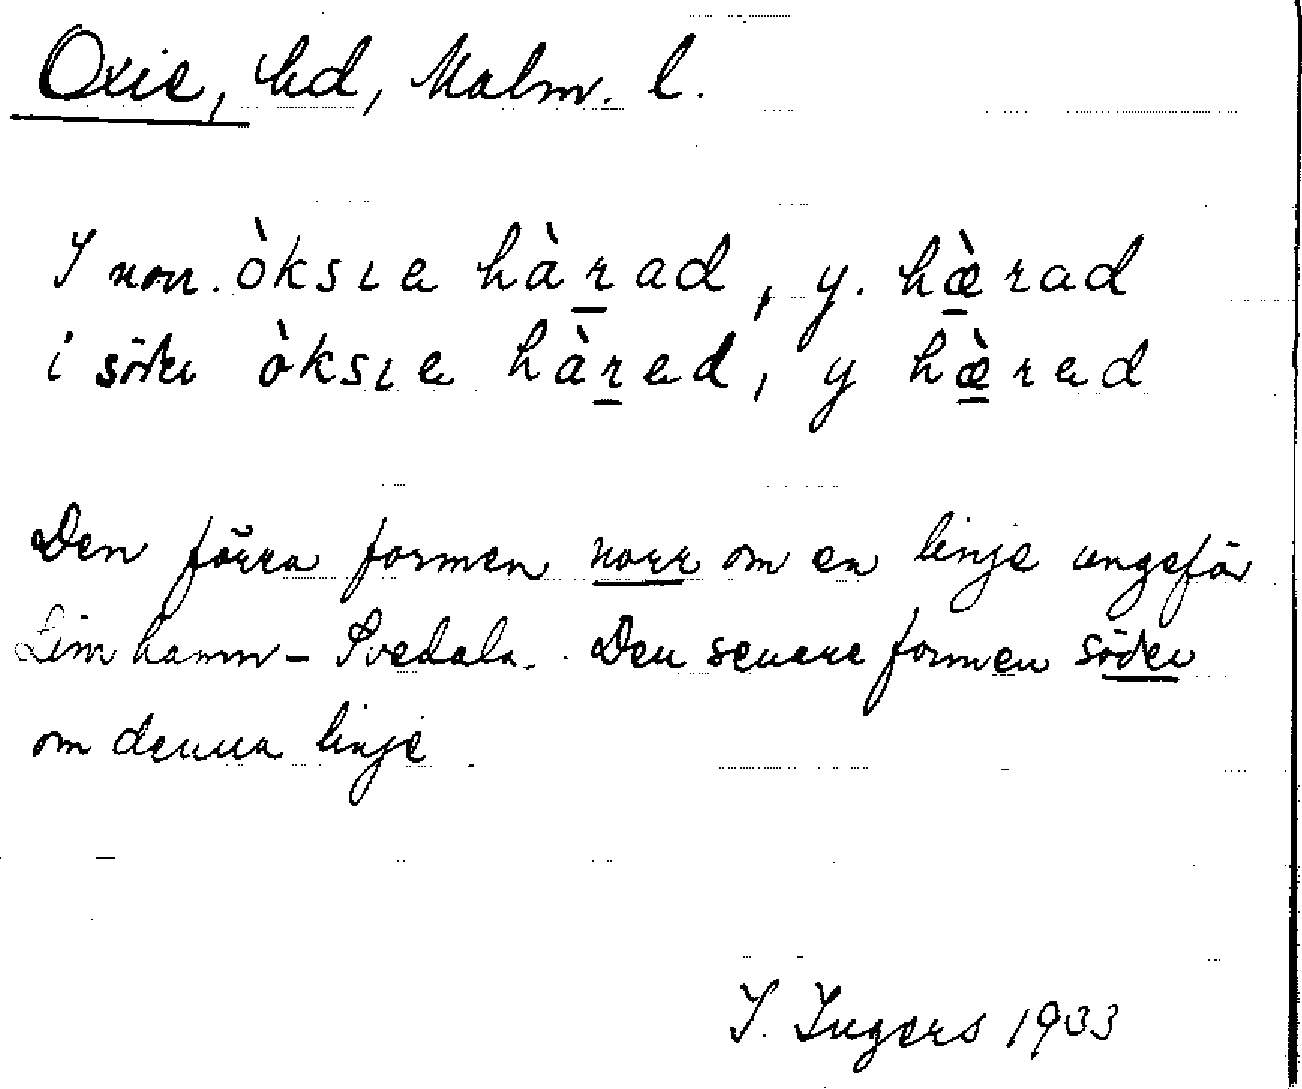 Oxie, hd, Malm. l.
I norr. òksıe hàrad, y. hærad
i söder òksıe hàred, y hæred
Den förra formen norr om en linje ungefär
Limhamn - Svedala. Den senare formen söder
om denna linje.
I. Ingers 1933